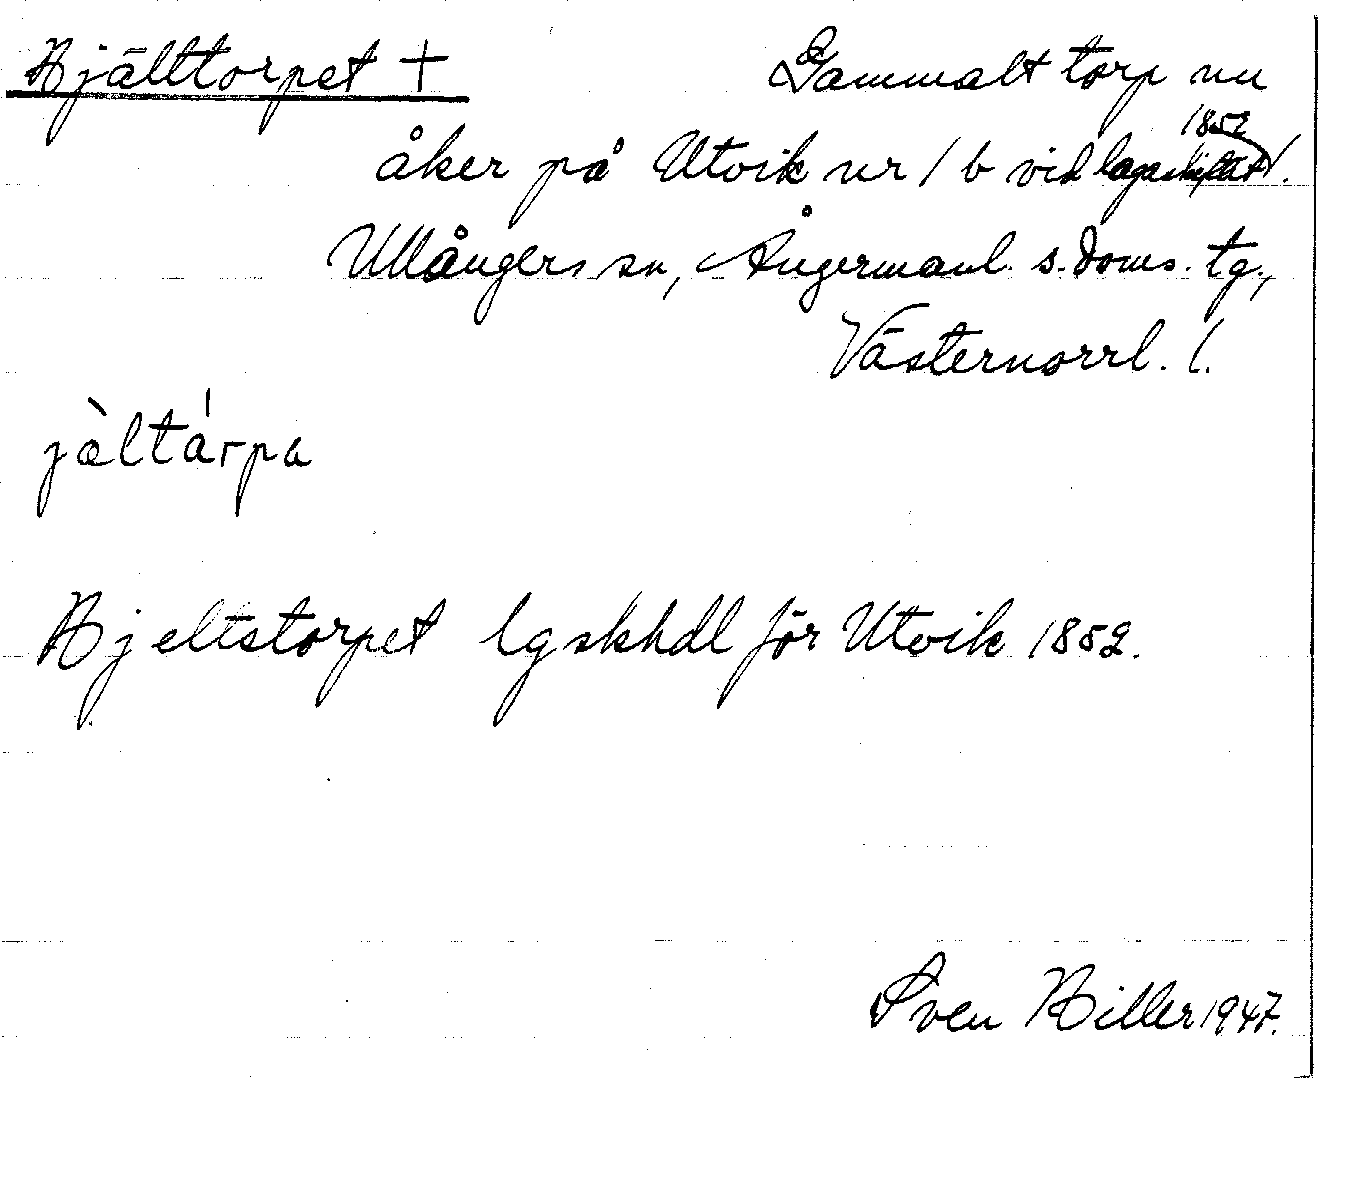 Hjälttorpet + Gammalt torp nu
åker på Utvik nr 1 b vid lagaskiftet 1852.
Ullångers sn, Ångermanl. s. doms. tg.,
Västernorrl. l.
jàltárpa
Hjeltstorpet lgskhdl för Utvik 1852.
Sven Hiller 1947.